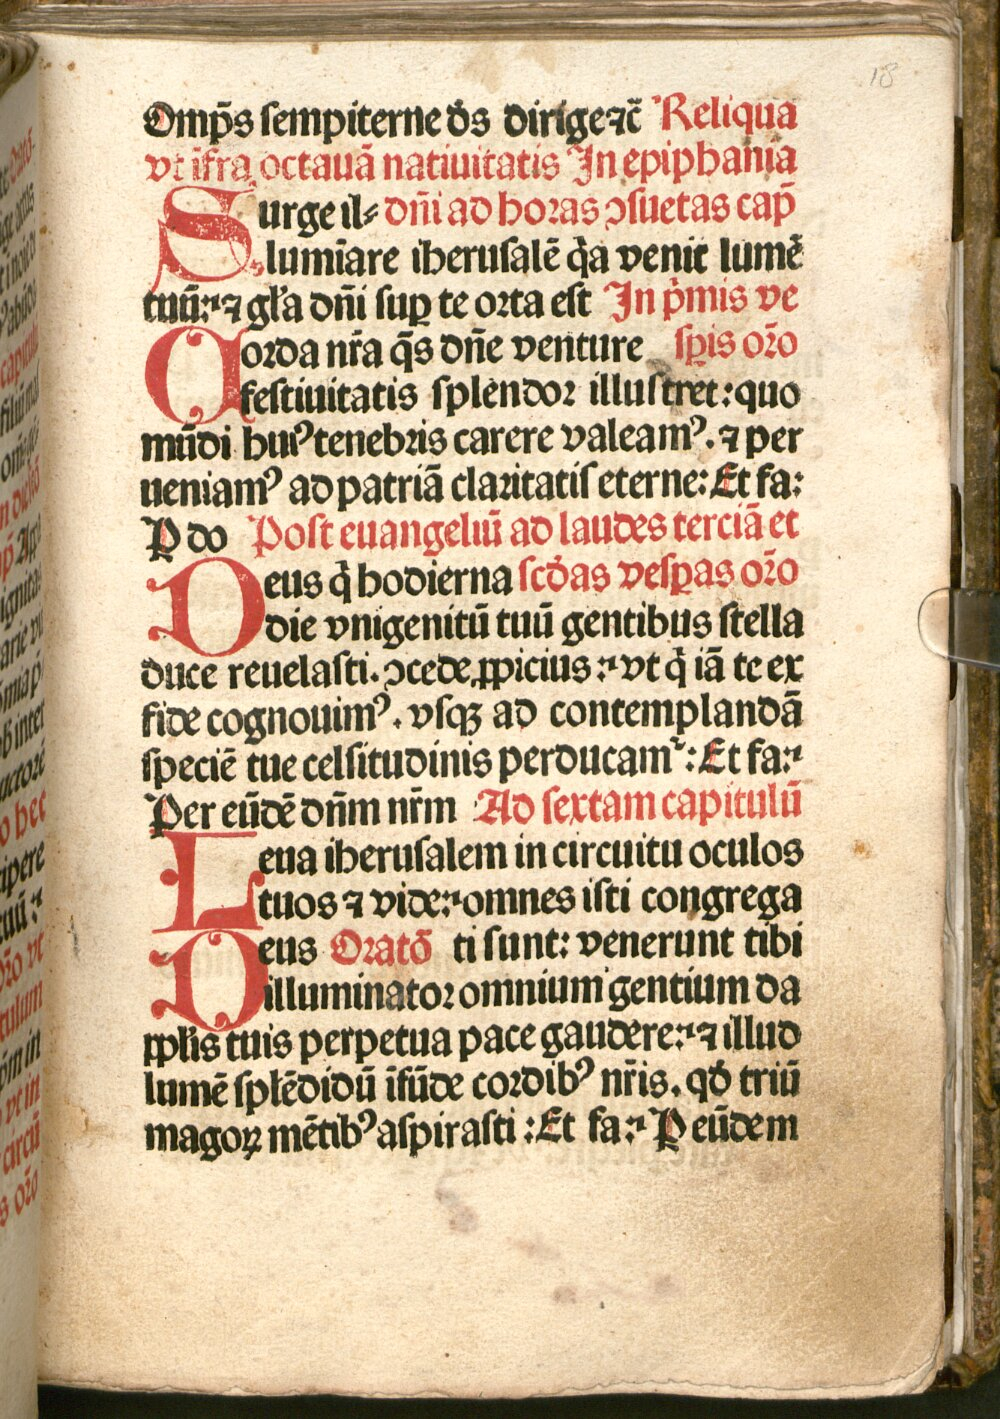 18
Omp̄s sempiterne d̄s dirige ⁊c̄ Reliqua
vt īfra octauā natiuitatis In epiphania
Surge il⸗ dn̄i ad horas ↄsuetas cap̄
lumīare iherusalē q̄a venit lumē
tuū: ⁊ gl̄a dn̄i suꝑ te orta est In p̄mis ve
Corda nr̄a q̄s dn̄e venture sꝑis or̄o
festiuitatis splendor illustret: quo
mūdi huiꝰ tenebris carere valeamꝰ. ⁊ per
ueniamꝰ ad patriā claritatis eterne: Et fa:
P do Post euangeliū ad laudes terciā et
Deus q̄ hodierna scd̄as vesꝑas or̄o
die vnigenitū tuū gentibus stella
duce reuelasti. ↄcede ꝓpicius: vt q̄ iā te ex
fide cognouimꝰ. vsqꝫ ad contemplandā
speciē tue celsitudinis perducamᷣ: Et fa:
Per eūdē dn̄m nr̄m Ad sextam capitulū
Leua iherusalem in circuitu oculos
tuos ⁊ vide: omnes isti congrega
Deus Oratō ti sunt: venerunt tibi
illuminator omnium gentium da
ppl̄is tuis perpetua pace gaudere: ⁊ illud
lumē splēdidū īfūde cordibꝰ nr̄is. qd̄ triū
magoꝝ mētibꝰ aspirasti: Et fa: P eūdem